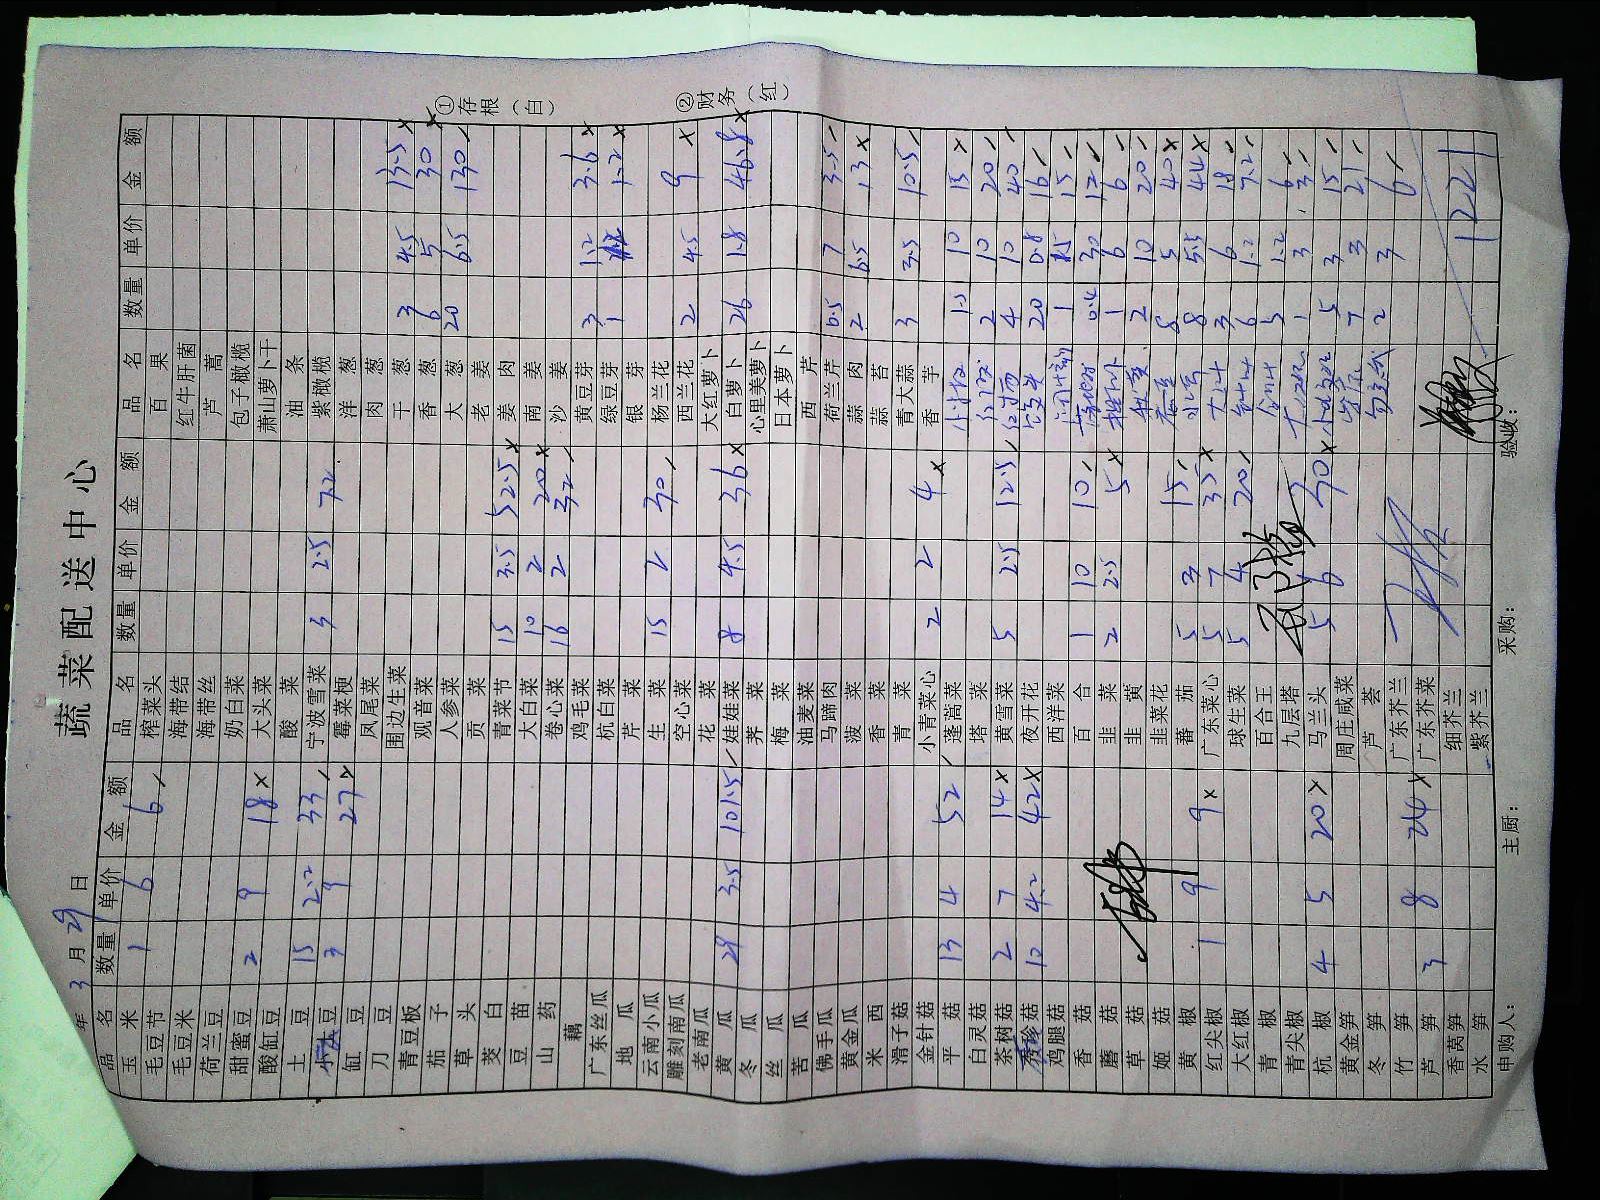 蔬菜配送中心
年 3月29日
品名 数量 单价 金额
玉米 1 6 6
毛豆节
毛豆米
荷兰豆
甜蜜豆 2 9 18
酸缸豆
土豆 15 2.2 33
豆 3 9 27
缸豆
刀豆
青豆板
茄子
草头
茭白
豆苗
山药
藕
广东丝瓜
地瓜
云南小瓜
雕刻南瓜
老南瓜
黄瓜 29 3.5 101.5
冬瓜
丝瓜
苦瓜
佛手瓜
黄金瓜
米西
滑子菇
金针菇
平菇 13 4 52
白灵菇
茶树菇 2 7 14
秀珍菇 10 4.2 42
鸡腿菇
香菇
蘑菇
草菇
姬菇
黄椒
红尖椒 1 9 9
大红椒
青椒
青尖椒
杭椒 4 5 20
黄金笋
冬笋
竹笋
芦笋 3 8 24
香莴笋
水笋
品名 数量 单价 金额
榨菜头
海带结
海带丝
奶白菜
大头菜
酸菜
宁波雪菜 3 2.5 7.2
霉菜梗
凤尾菜
围边生菜
观音菜
人参菜
贡菜
青菜节 15 3.5 52.5
大白菜 10 2 20
卷心菜 16 2 32
鸡毛菜
杭白菜
芹菜
生菜 15 2 30
空心菜
花菜
娃娃菜 8 4.5 36
荠菜
梅菜
油麦菜
马蹄肉
菠菜
香菜
青菜
小青菜心 2 2 4
蓬蒿菜
塔菜
黄雪菜 5 2.5 12.5
夜开花
西洋菜
百合 1 10 10
韭菜 2 2.5 5
韭黄
韭菜花
番茄 5 3 15
广东菜心 5 7 35
球生菜 5 4 20
百合王
九层塔
马兰头 5 6 30
周庄咸菜
芦荟
广东芥兰
广东芥菜
细芥兰
紫芥兰
品名 数量 单价 金额
百果
红牛肝菌
芦蒿
包子橄榄
萧山萝卜干
油条
紫橄榄
洋葱
肉葱
干葱 3 4.5 13.5
香葱 6 5 30
大葱 20 6.5 130
老姜
姜肉
南姜
沙姜
黄豆芽 3 1.2 3.6
绿豆芽 1 1.2
银芽
杨兰花
西兰花 2 4.5 9
大红萝卜
白萝卜 26 1.8 46.8
心里美萝卜
日本萝卜
西芹
荷兰芹 0.5 7 3.5
蒜肉 2 6.5 13
蒜苔
青大蒜 3 3.5 10.5
香芋
1.5 10 15
2 10 20
4 10 40
20 0.8 16
1 15 15
0.4 30 12
1 6 6
2 10 20
8 5 40
8 5.5 44
3 6 18
6 1.2 7.2
5 1.2 6
1 3 3
5 3 15
7 3 21
2 3 6
1221
申购人:
主厨:
采购:
验收:
①存根(白)
②财务(红)